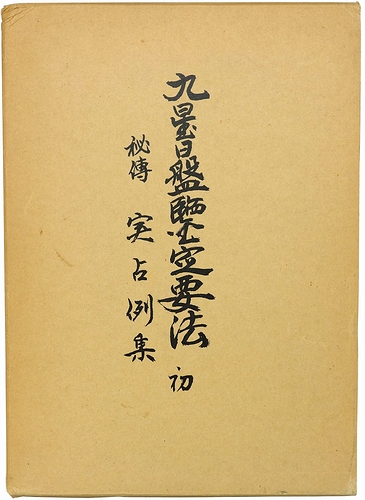 九星日盤鑑定要法 初
秘傳 実占例集